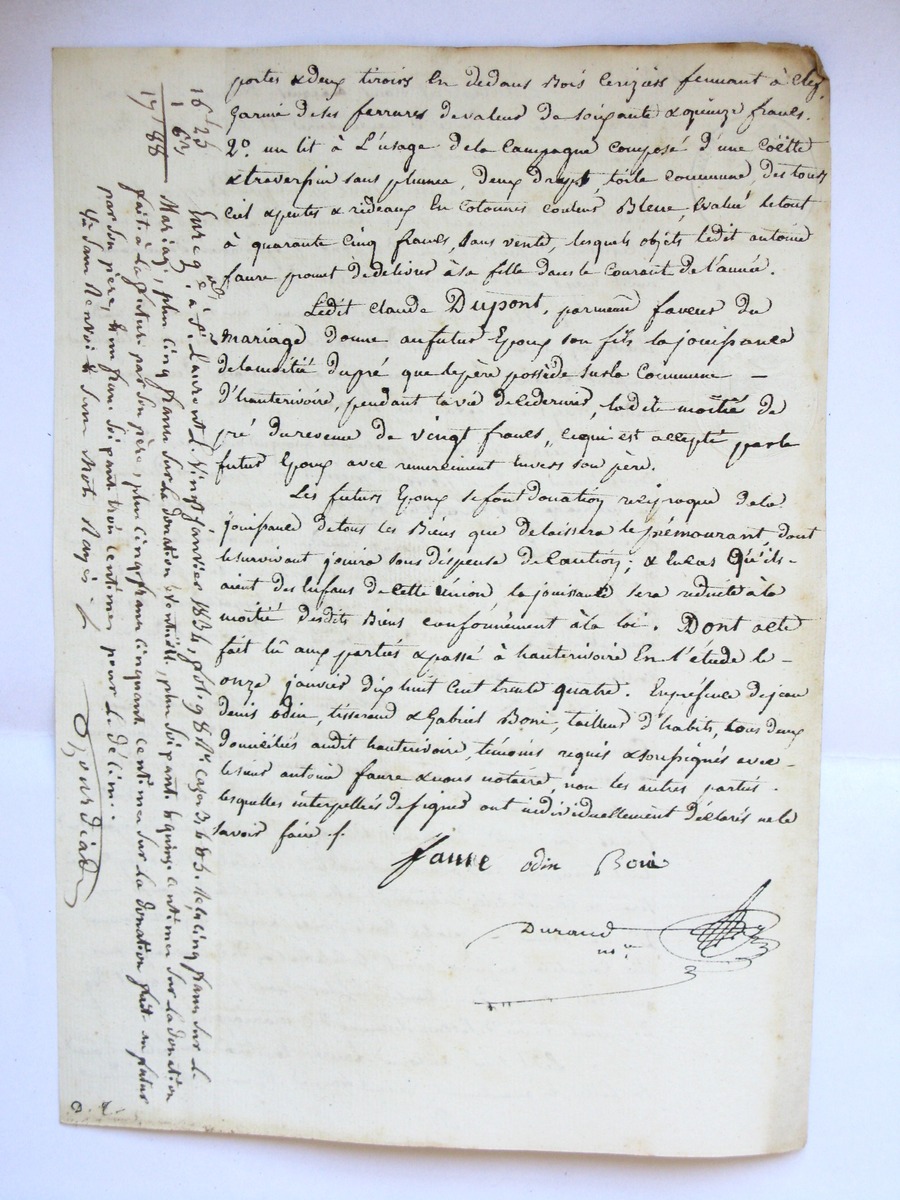 portes & deux tiroirs En dedans Bois Cerizier fermant à clef
Garnie de ses ferrures de valeur de soixante & quinze francs.
2º. un lit à L'usage dela Campagne composé d'une Coëtte
& traverspin sans plumes, deux draps, toile commune des tous
Ciel & pentes & rideaux En Cotonnes couleur Bleue, Evalué le tout
à quarante Cinq francs, sans vente, lesquels objets ledit antoine
faure promet de délivrer à sa fille dans le Courant de l'année.
Ledit claude Dupont, par même faveur du
mariage donne au futur Epoux son fils la jouissance
de la moitié du pré que le père possède sur la Commune –
d'hauterivoire, pendant la vie de ce dernier, ladite moitié de
pré du revenu de vingt francs, ce qui est accepté par le
futur Epoux avec remerciment Envers son père.
Les futurs Epoux se font donation réciproque de la
jouissance de tous les Biens que delaissera le prémourant, dont
le survivant jouira sous dispense de Caution; & En cas Qu'ils –
aient des Enfans de Cette union la jouissance sera réduite à la
moitié desdits Biens conformément à la loi. Dont acte
fait lû aux parties & passé à hauterivoire En l'étude le –
onze janvier dix huit Cent trente quatre. En présence de jean
denis odin, tisserand & Gabriel Boni, tailleur d'habits, tous deux
domiciliés audit hauterivoire, témoins requis & soussignés avec –
le sieur antoine faure & nous notaire, non les autres parties.
lesquelles interpellées de signer ont individuellement déclarés ne le
savoir faire ./.
faure odin Boni
Durand
nre
16 25
1 63
17 88
Enregé. à St. Laurent le vingt janvier 1834, fol. 98 Ro. cases 3, 4 & 5. Reçu cinq francs sur le
Mariage, plus cinq francs sur la donation éventuelle, plus soixante & quinze centimes sur la donation
faite à la future par son père, plus cinq francs cinquante centimes sur la donation faite au futur
par son père, & un franc soixante trois centimes pour le décime.